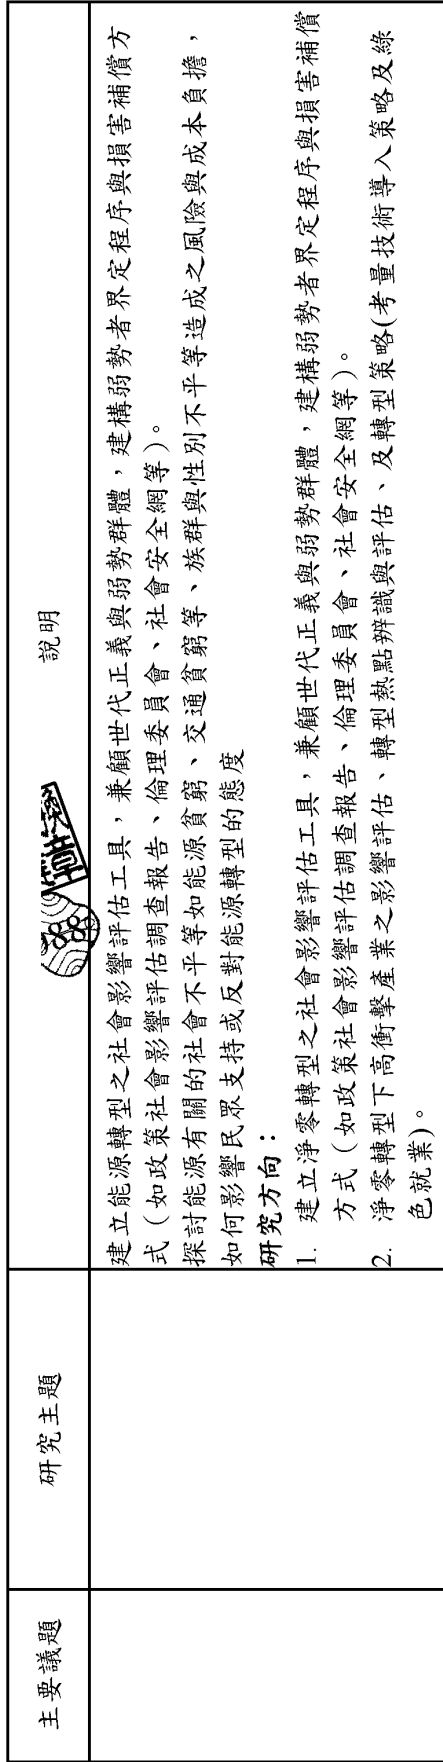 主要議題 研究主題 說明
建立能源轉型之社會影響評估工具，兼顧世代正義與弱勢群體，建構弱勢者界定程序與損害補償方
式（如政策社會影響評估調查報告、倫理委員會、社會安全網等）。
探討能源有關的社會不平等如能源貧窮、交通貧窮等、族群與性別不平等造成之風險與成本負擔，
如何影響民眾支持或反對能源轉型的態度
研究方向：
1. 建立淨零轉型之社會影響評估工具，兼顧世代正義與弱勢群體，建構弱勢者界定程序與損害補償
方式（如政策社會影響評估調查報告、倫理委員會、社會安全網等）。
2. 淨零轉型下高衝擊產業之影響評估、轉型熱點辨識與評估、及轉型策略(考量技術導入策略及綠
色就業)。